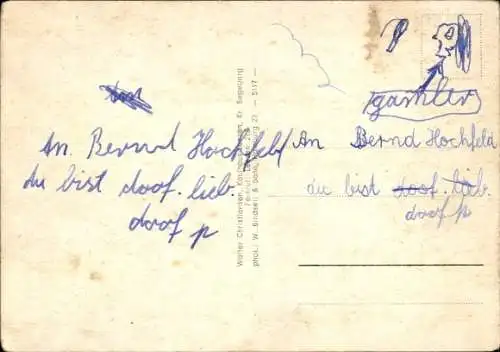 An Bernd Hochfeld
du bist doof. lieb.
doof p
Walter Christiansen,
phot.: W. Bindseil &
5197
gamler
An Bernd Hochfeld
du bist doof. lieb.
doof p